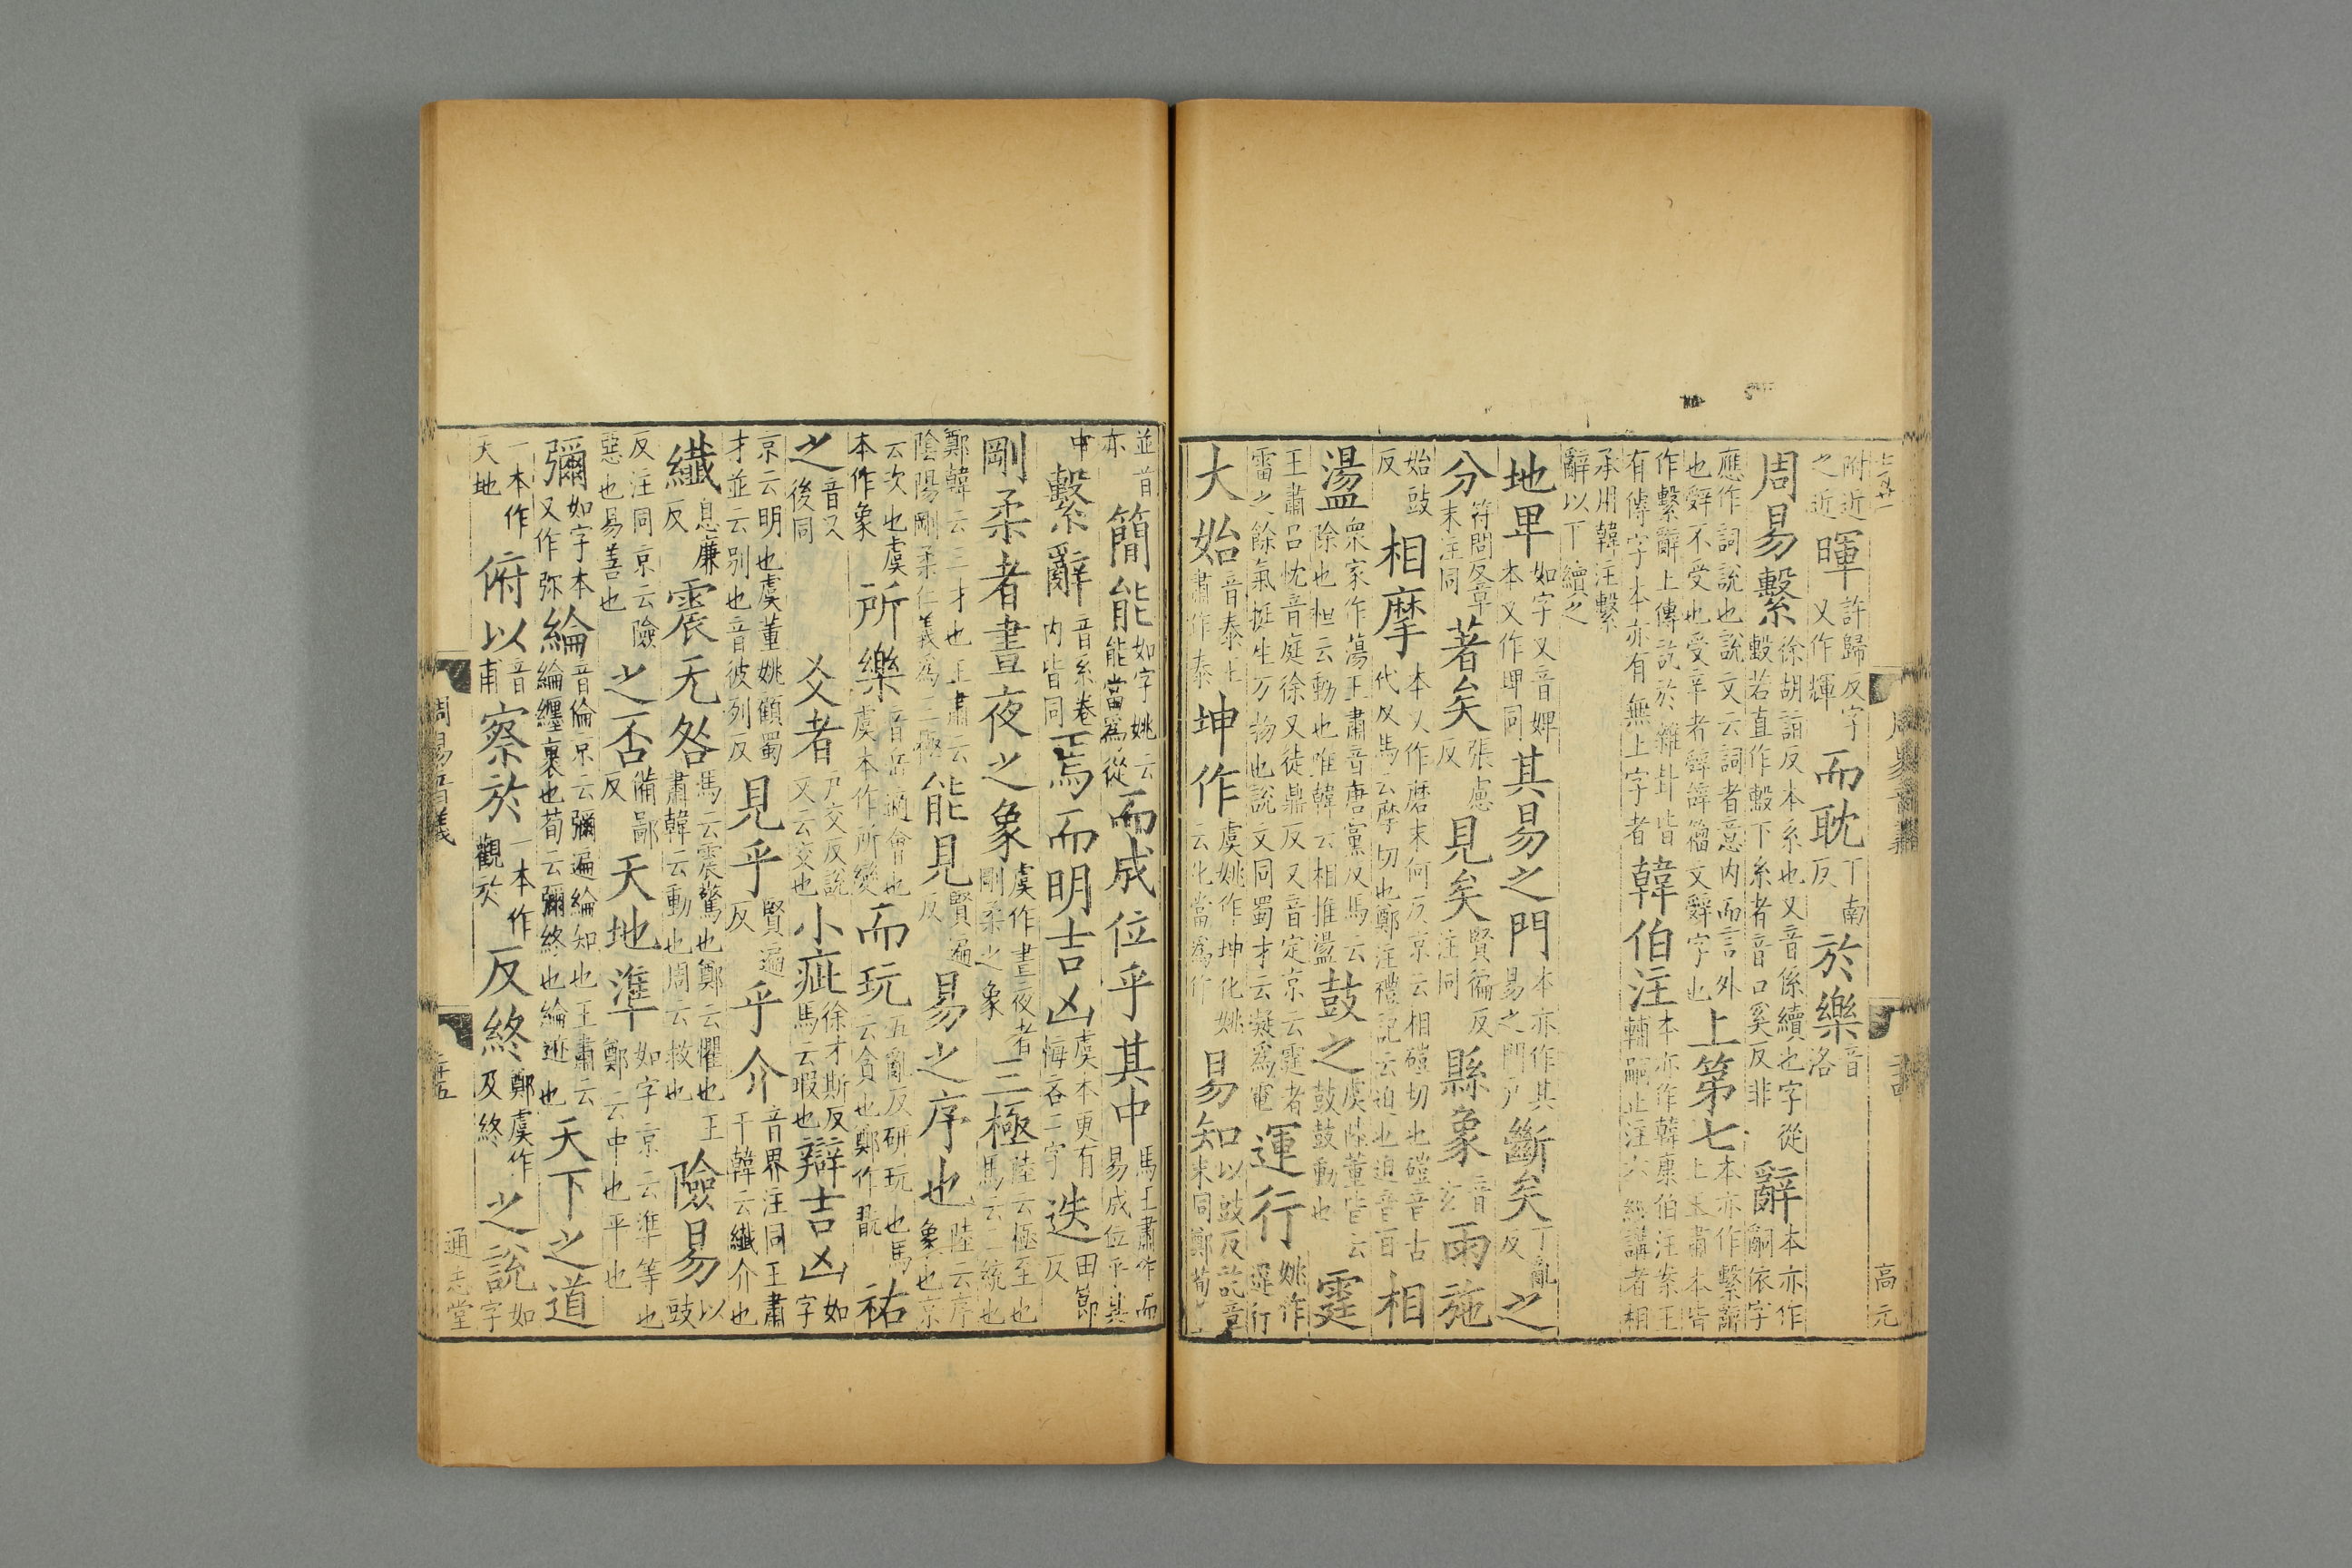 附近之近暉許歸反字又作輝而耽丁南反於樂音洛
周易繫徐胡詣反本系也又音係續也字從毄若直作毄下系者音口奚反非辭本亦作嗣依字
應作詞說也說文云詞者意內而言外也辤不受也受辛者辤辭籀文辤字也上第七本亦作繫辭上王肅本皆
作繫辭上傳訖於雜卦皆有傳字本亦有無上字者韓伯注本亦作韓康伯注案王輔嗣止注六經講者相
承用韓注繫辭以下續之
地卑如字又音婢本又作埤同其易之門本亦作其易之門戶斷矣丁亂反之
分符問反章末注同著矣張慮反見矣賢徧反注同縣象音玄雨施
始豉反相摩本又作磨末何反京云相磑切也磑音古代反馬云摩切也鄭注禮記云迫也迫音百相
盪衆家作蕩王肅音唐黨反馬云除也桓云動也唯韓云相推盪鼓之虞陸董皆云鼓鼓動也霆
王肅呂忱音庭徐又徒鼎反又音定京云霆者雷之餘氣挺生万物也說文同蜀才云凝爲電運行姚作違行
大始音泰王肅作泰坤作虞姚作坤化姚云化當爲作易知以豉反訖章末同鄭荀
並音亦簡能如字姚云能當爲從而成位乎其中馬王肅作而易成位乎其
中繫辭音系卷內皆同焉而明吉凶虞本更有悔吝二字迭田節反
剛柔者晝夜之象虞作晝夜者剛柔之象三極陸云極至也馬云三統也
鄭韓云三才也王肅云陰陽剛柔仁義爲三極能見賢遍反易之序也陸云序象也京
云次也虞本作象所樂音岳適會也虞本作所變而玩五亂反研玩也馬云貪也鄭作翫祐
之音又後同爻者戶交反說文云交也小疵徐才斯反馬云瑕也辯吉凶如字
京云明也虞董姚顧蜀才並云別也音彼列反見乎賢遍反乎介音界注同王肅干韓云纖介也
纖息廉反震无咎馬云震驚也鄭云懼也王肅韓云動也周云救也險易以豉
反注同京云險惡也易善也之否備鄙反天地準如字京云準等也鄭云中也平也
彌如字本又作弥綸音倫京云彌遍綸知也王肅云綸纏裹也荀云彌終也綸迹也天下之道
一本作天地俯以音甫察於一本作觀於反終鄭虞作及終之說如字
周易音義
高元
周易音義
通志堂